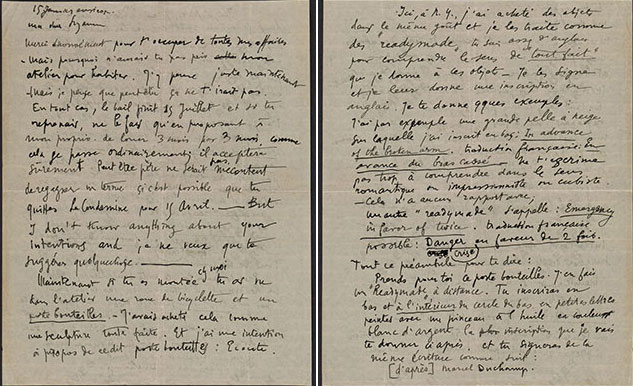 15 janvier environ.
ma chère Suzanne
merci énormément pour t'occuper de toutes mes affaires
- Mais pourquoi n'aurais tu pas pris mon
atelier pour habiter. J'y pense juste maintenant
- Mais je pense que peut être ça ne t'irait pas.
En tout cas, le bail finit 15 Juillet et si tu
reprenais, ne le fais qu'en proposant à
mon proprio. de louer 3 mois par 3 mois, comme
cela se passe ordinairement; il acceptera
sûrement. Peut être père ne serait pas mécontent
de regagner un terme si c'est possible que tu
quittes La Condamine pour 15 Avril. — But
I don't know anything about your
intentions and je ne veux que te
suggérer quelquechose —
Maintenant si tu es montée chez moi tu as vu
dans l'atelier une roue de bicyclette et un
porte bouteilles. - J'avais acheté cela comme
une sculpture toute faite. Et j'ai une intention
à propos de ce dit porte bouteilles : Ecoute.
Ici, à N.Y., j'ai acheté des objets
dans le même goût et je les traite comme
des "readymade", tu sais assez d'anglais
pour comprendre le sens de "tout fait"
que je donne à ces objets - Je les signe
et je leur donne une inscription en
anglais. Je te donne qques exemples:
J'ai par exemple une grande pelle à neige
sur laquelle j'ai inscrit en bas: In advance
of the broken arm. traduction française: En
avance du bras cassé - ne t'escrime
pas trop à comprendre dans le sens
romantique ou impressionniste ou cubiste
- Cela n'a aucun rapport avec;
un autre "readymade" s'appelle : Emergency
in favor of twice. traduction française
possible: Danger Crise en faveur de 2 fois.
Tout ce préambule pour te dire :
Prends pour toi ce porte bouteilles. J'en fais
un "Readymade" à distance. Tu inscriras en
bas et à l'intérieur du cercle du bas en petites lettres
peintes avec un pinceau à l'huile en couleur
blanc d'argent la inscription que je vais
te donner ci après. et tu signeras de la
même écriture comme suit :
[d'après] Marcel Duchamp.